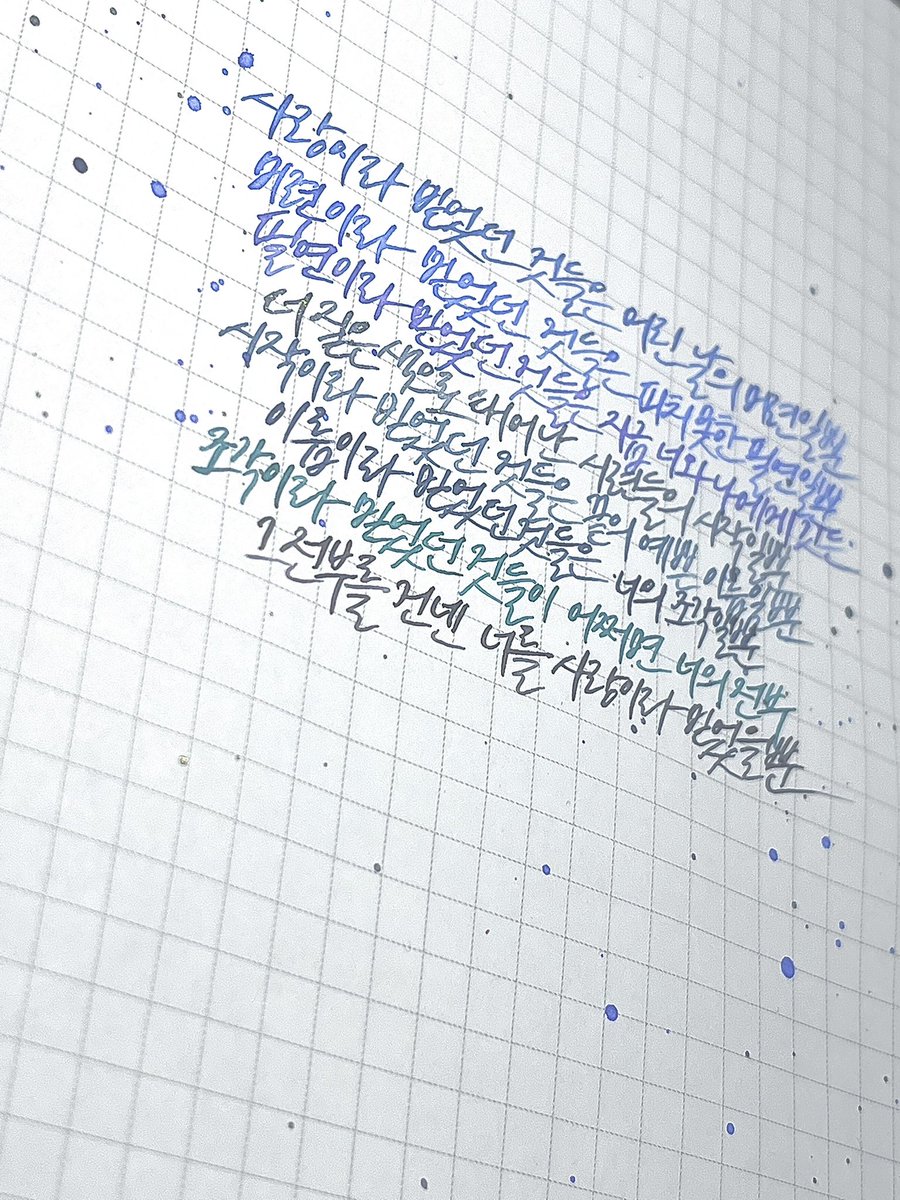 사랑이라 믿었던 것들은 어린 날의 미련일뿐
미련이라 믿었던 것들은 피치 못한 필연일뿐
필연이라 믿었던 것들은 지금 너와 나에게 것든
더 짙은 색으로 태어나 시련들의 시작일뿐
시작이라 믿었던 것들은 꿈의 예쁜 이음일뿐
이음이라 믿었던 것들은 너의 조각일뿐
조각이라 믿었던 것들이 어쩌면 너의 전부
그 전부를 건넨 너를 사랑이라 믿었을뿐